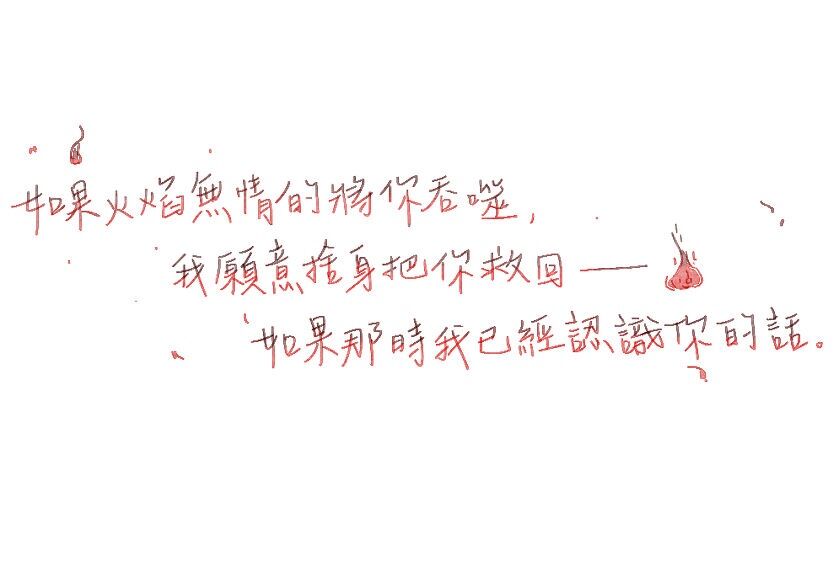 如果火焰無情的將你吞噬,
我願意捨身把你救回——
如果那時我已經認識你的話。